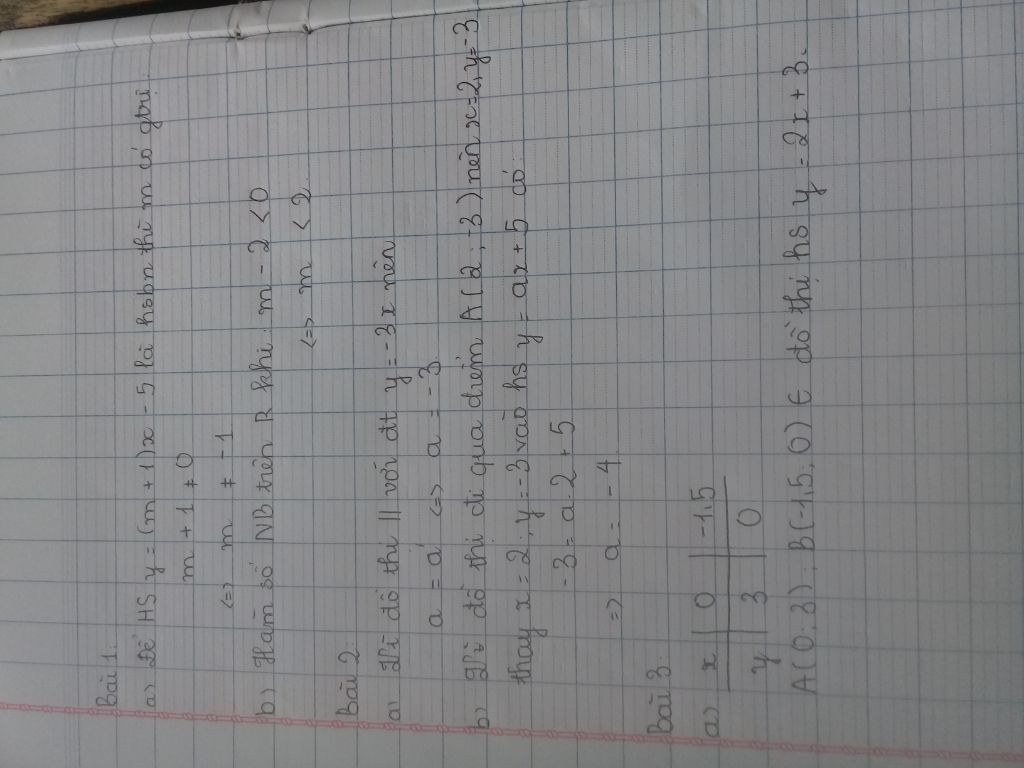 Bài 1
a) Để HS y = (m + 1)x - 5 là hsbn thì m có gtrị.
m + 1 ≠ 0
<=> m ≠ -1
b) Hàm số NB trên R khi: m - 2 < 0
<=> m < 2.
Bài 2
a) Vì đồ thị // với đt y = -3x nên
a = a' <=> a = -3
b) Vì đồ thị đi qua điểm A(2; -3) nên x=2, y=-3
thay x = 2, y = -3 vào hs y = ax + 5 có:
-3 = a.2 + 5
=> a = -4
Bài 3.
a) x | 0 | -1,5
y | 3 | 0
A(0,3); B(-1,5, 0) ∈ đồ thị hs y = 2x + 3.